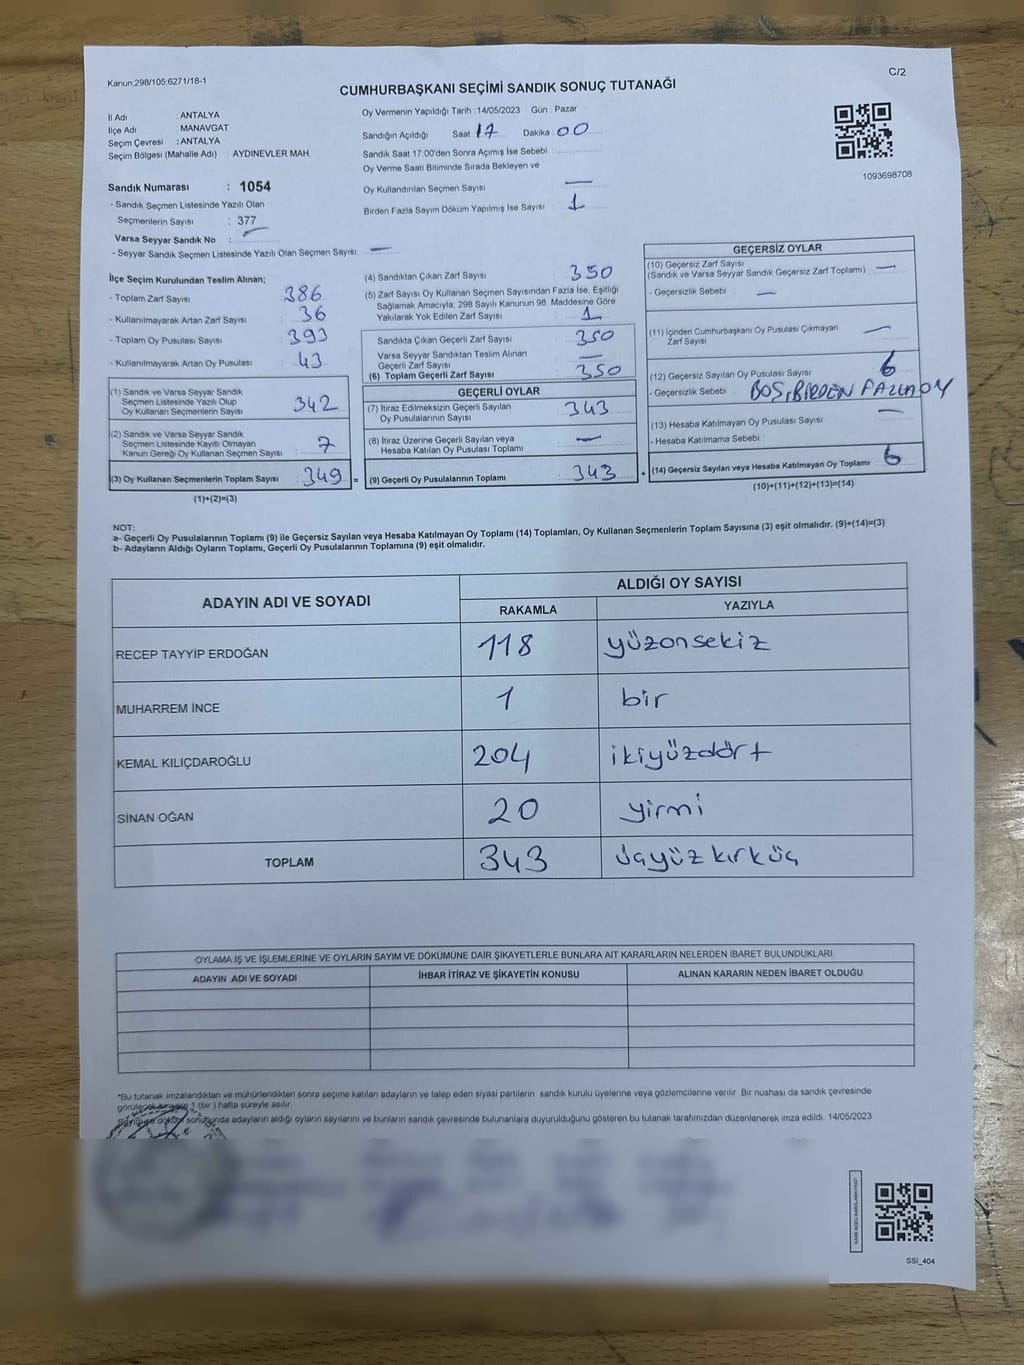 Kanun:298/105;6271/18-1
C/2
CUMHURBAŞKANI SEÇİMİ SANDIK SONUÇ TUTANAĞI
İl Adı : ANTALYA
İlçe Adı : MANAVGAT
Seçim Çevresi : ANTALYA
Seçim Bölgesi (Mahalle Adı) : AYDINEVLER MAH.
Sandık Numarası : 1054
- Sandık Seçmen Listesinde Yazılı Olan
Seçmenlerin Sayısı : 377
Varsa Seyyar Sandık No : —
- Seyyar Sandık Seçmen Listesinde Yazılı Olan Seçmen Sayısı : —
Oy Vermenin Yapıldığı Tarih : 14/05/2023 Gün : Pazar
Sandığın Açıldığı Saat 17 Dakika : 00
Sandık Saat 17.00'den Sonra Açımış İse Sebebi :
Oy Verme Saati Bitiminde Sırada Bekleyen ve
Oy Kullandırılan Seçmen Sayısı —
Birden Fazla Sayım Döküm Yapılmış İse Sayısı : 1
1093698708
İlçe Seçim Kurulundan Teslim Alınan;
- Toplam Zarf Sayısı : 386
- Kullanılmayarak Artan Zarf Sayısı : 36
- Toplam Oy Pusulası Sayısı : 393
- Kullanılmayarak Artan Oy Pusulası : 43
(1) Sandık ve Varsa Seyyar Sandık
Seçmen Listesinde Yazılı Olup
Oy Kullanan Seçmenlerin Sayısı : 342
(2) Sandık ve Varsa Seyyar Sandık
Seçmen Listesinde Kayıtlı Olmayan
Kanun Gereği Oy Kullanan Seçmen Sayısı : 7
(3) Oy Kullanan Seçmenlerin Toplam Sayısı : 349 =
(1)+(2)=(3)
(4) Sandıktan Çıkan Zarf Sayısı : 350
(5) Zarf Sayısı Oy Kullanan Seçmen Sayısından Fazla İse, Eşitliği
Sağlamak Amacıyla, 298 Sayılı Kanunun 98. Maddesine Göre
Yakılarak Yok Edilen Zarf Sayısı : 1
Sandıkta Çıkan Geçerli Zarf Sayısı : 350
Varsa Seyyar Sandıktan Teslim Alınan
Geçerli Zarf Sayısı : —
(6) Toplam Geçerli Zarf Sayısı : 350
GEÇERLİ OYLAR
(7) İtiraz Edilmeksizin Geçerli Sayılan
Oy Pusulalarının Sayısı : 343
(8) İtiraz Üzerine Geçerli Sayılan veya
Hesaba Katılan Oy Pusulası Toplamı : —
(9) Geçerli Oy Pusulalarının Toplamı : 343 +
GEÇERSİZ OYLAR
(10) Geçersiz Zarf Sayısı
(Sandık ve Varsa Seyyar Sandık Geçersiz Zarf Toplamı) : —
- Geçersizlik Sebebi : —
(11) İçinden Cumhurbaşkanı Oy Pusulası Çıkmayan
Zarf Sayısı : —
(12) Geçersiz Sayılan Oy Pusulası Sayısı : 6
- Geçersizlik Sebebi : BOŞ, BİRDEN FAZLA OY
(13) Hesaba Katılmayan Oy Pusulası Sayısı : —
- Hesaba Katılmama Sebebi :
(14) Geçersiz Sayılan veya Hesaba Katılmayan Oy Toplamı : 6
(10)+(11)+(12)+(13)=(14)
NOT:
a- Geçerli Oy Pusulalarının Toplamı (9) ile Geçersiz Sayılan veya Hesaba Katılmayan Oy Toplamı (14) Toplamları, Oy Kullanan Seçmenlerin Toplam Sayısına (3) eşit olmalıdır. (9)+(14)=(3)
b- Adayların Aldığı Oyların Toplamı, Geçerli Oy Pusulalarının Toplamına (9) eşit olmalıdır.
ADAYIN ADI VE SOYADI
ALDIĞI OY SAYISI
RAKAMLA YAZIYLA
RECEP TAYYİP ERDOĞAN 118 yüzonsekiz
MUHARREM İNCE 1 bir
KEMAL KILIÇDAROĞLU 204 ikiyüzdört
SİNAN OĞAN 20 yirmi
TOPLAM 343 üçyüzkırküç
OYLAMA İŞ VE İŞLEMLERİNE VE OYLARIN SAYIM VE DÖKÜMÜNE DAİR ŞİKAYETLERLE BUNLARA AİT KARARLARIN NELERDEN İBARET BULUNDUKLARI
ADAYIN ADI VE SOYADI İHBAR İTİRAZ VE ŞİKAYETİN KONUSU ALINAN KARARIN NEDEN İBARET OLDUĞU
*Bu tutanak imzalandıktan ve mühürlendikten sonra seçime katılan adayların ve talep eden siyasi partilerin sandık kurulu üyelerine veya gözlemcilerine verilir. Bir nüshası da sandık çevresinde
1 (bir) hafta süreyle asılır.
sonunda adayların aldığı oyların sayılarını ve bunların sandık çevresinde bulunanlara duyurulduğunu gösteren bu tutanak tarafımızdan düzenlenerek imza edildi. 14/05/2023
SSI_404